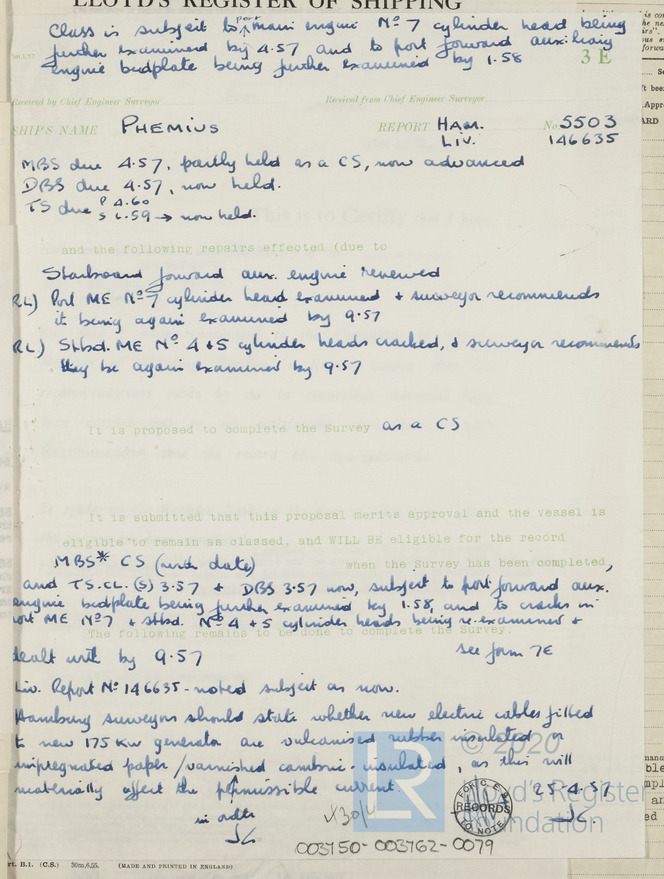 LLOYD'S REGISTER OF SHIPPING
Class is subject to port main engine Nº 7 cylinder head being
further examined by 4.57 and to port forward auxiliary
engine bedplate being further examined by 1.58
3 E
Received by Chief Engineer Surveyor
Received from Chief Engineer Surveyor
SHIP'S NAME PHEMIUS REPORT HAM. No. 5503
LIV. 146635
MBS due 4.57, partly held as a CS, now advanced
DBS due 4.57, now held.
TS due P 4.60
S 6.59 → now held.
and the following repairs effected (due to
Starboard forward aux. engine renewed
RL) Port ME Nº 7 cylinder head examined & surveyor recommends
it being again examined by 9.57
RL) Stbd. ME Nº 4 & 5 cylinder heads cracked, & surveyor recommends
they be again examined by 9.57
It is proposed to complete the Survey as a CS
It is submitted that this proposal merits approval and the vessel is
eligible to remain as classed, and WILL BE eligible for the record
MBS* CS (with date) when the Survey has been completed,
and TS.CL.(S) 3.57 & DBS 3.57 now, subject to port forward aux.
engine bedplate being further examined by 1.58, and to cracks in
port ME Nº 7 & stbd. Nº 4 & 5 cylinder heads being re-examined &
The following remains to be done to complete the Survey.
dealt with by 9.57 see form 7E
Liv. Report Nº 146635 - noted subject as now.
Hamburg surveyors should state whether new electric cables fitted
to new 175 KW generator are vulcanised rubber insulated or
impregnated paper/varnished cambric insulated, as this will
materially affect the permissible current.
in order
25.4.57
FOR C.E.
RECORDS
TO NOTE
© 2020
LR
Lloyd's Register
Foundation
003750-003762-0079
rt. B.1. (C.S.) 30m,6,55. (MADE AND PRINTED IN ENGLAND)